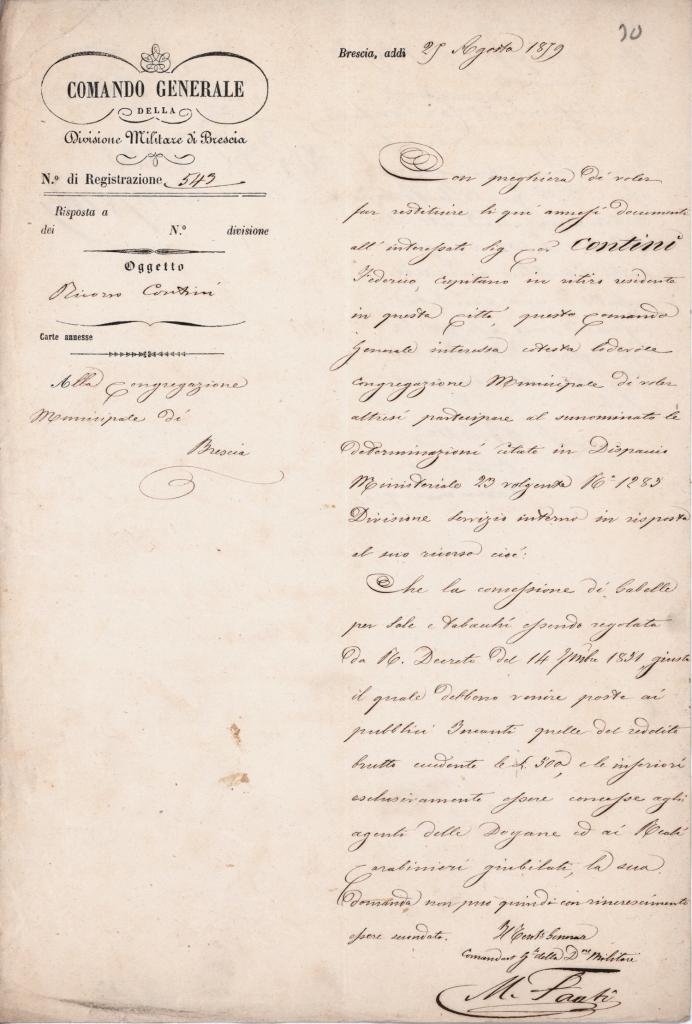 20
Brescia, addì 25 Agosto 1859
COMANDO GENERALE
DELLA
Divisione Militare di Brescia
N.º di Registrazione 543
Risposta a
dei N.º divisione
Oggetto
Ricorso Contini
Carte annesse
Alla Congregazione
Municipale di
Brescia
Con preghiera di voler
far restituire li qui annessi documenti
all' interessato Sig. Contini
Federico, capitano in ritiro residente
in questa Città, questo Comando
Generale interessa cotesta lodevole
Congregazione Municipale di voler
altresì partecipare al sunnominato le
determinazioni citate in Dispaccio
Ministeriale 23 volgente N.º 1283
Divisione servizio interno in risposta
al suo ricorso cioè:
Che la concessione di Gabelle
per Sale e Tabacchi essendo regolata
da R. Decreto del 14 7mbre 1851, giusta
il quale debbono venire poste ai
pubblici Incanti quelle del reddito
brutto eccedente le £. 500, e le inferiori
esclusivamente essere concesse agli
agenti delle Dogane ed ai Reali
Carabinieri giubilati, la sua
domanda non può quindi con rincrescimento
essere secondata.
Il Gen.
Comandante G.le della D.ne Militare
M. Fanti